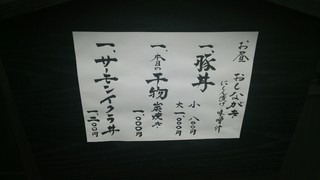 お昼 おしながき
味噌汁
一、豚丼
小 八〇〇円
大 一、〇〇〇円
一、本日の干物炭焼き
一、〇〇〇円
一、サーモンイクラ丼
一、三〇〇円